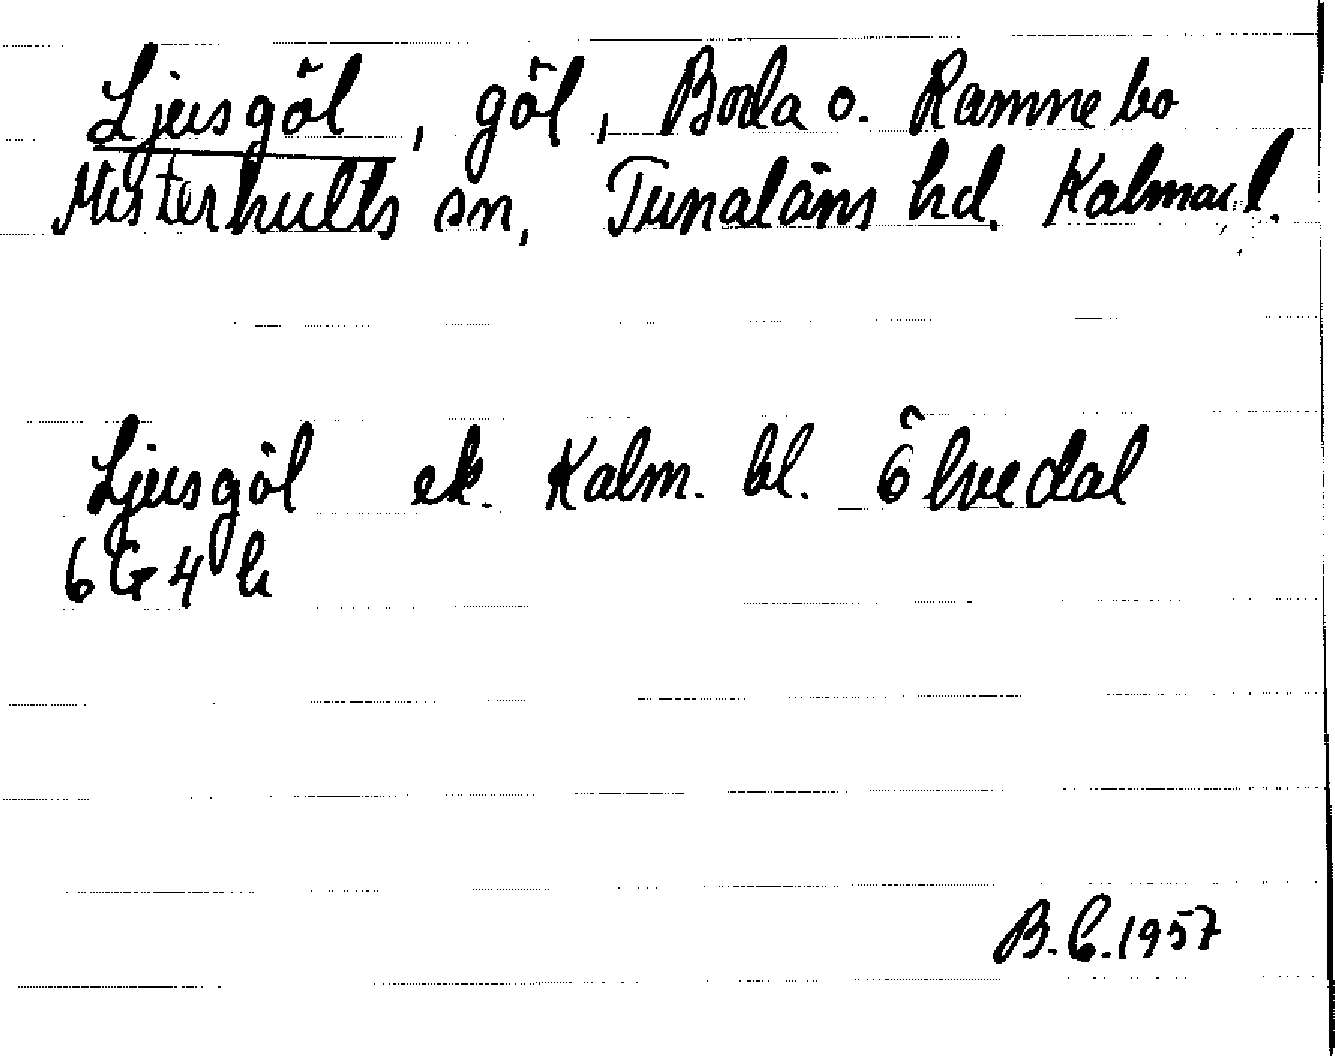 Ljusgöl, göl, Boda o. Ramnebo
Misterhults sn, Tunaläns hd. Kalmar l.
Ljusgöl ek. Kalm. bl. Ölvedal
6G4h
B.C.1957